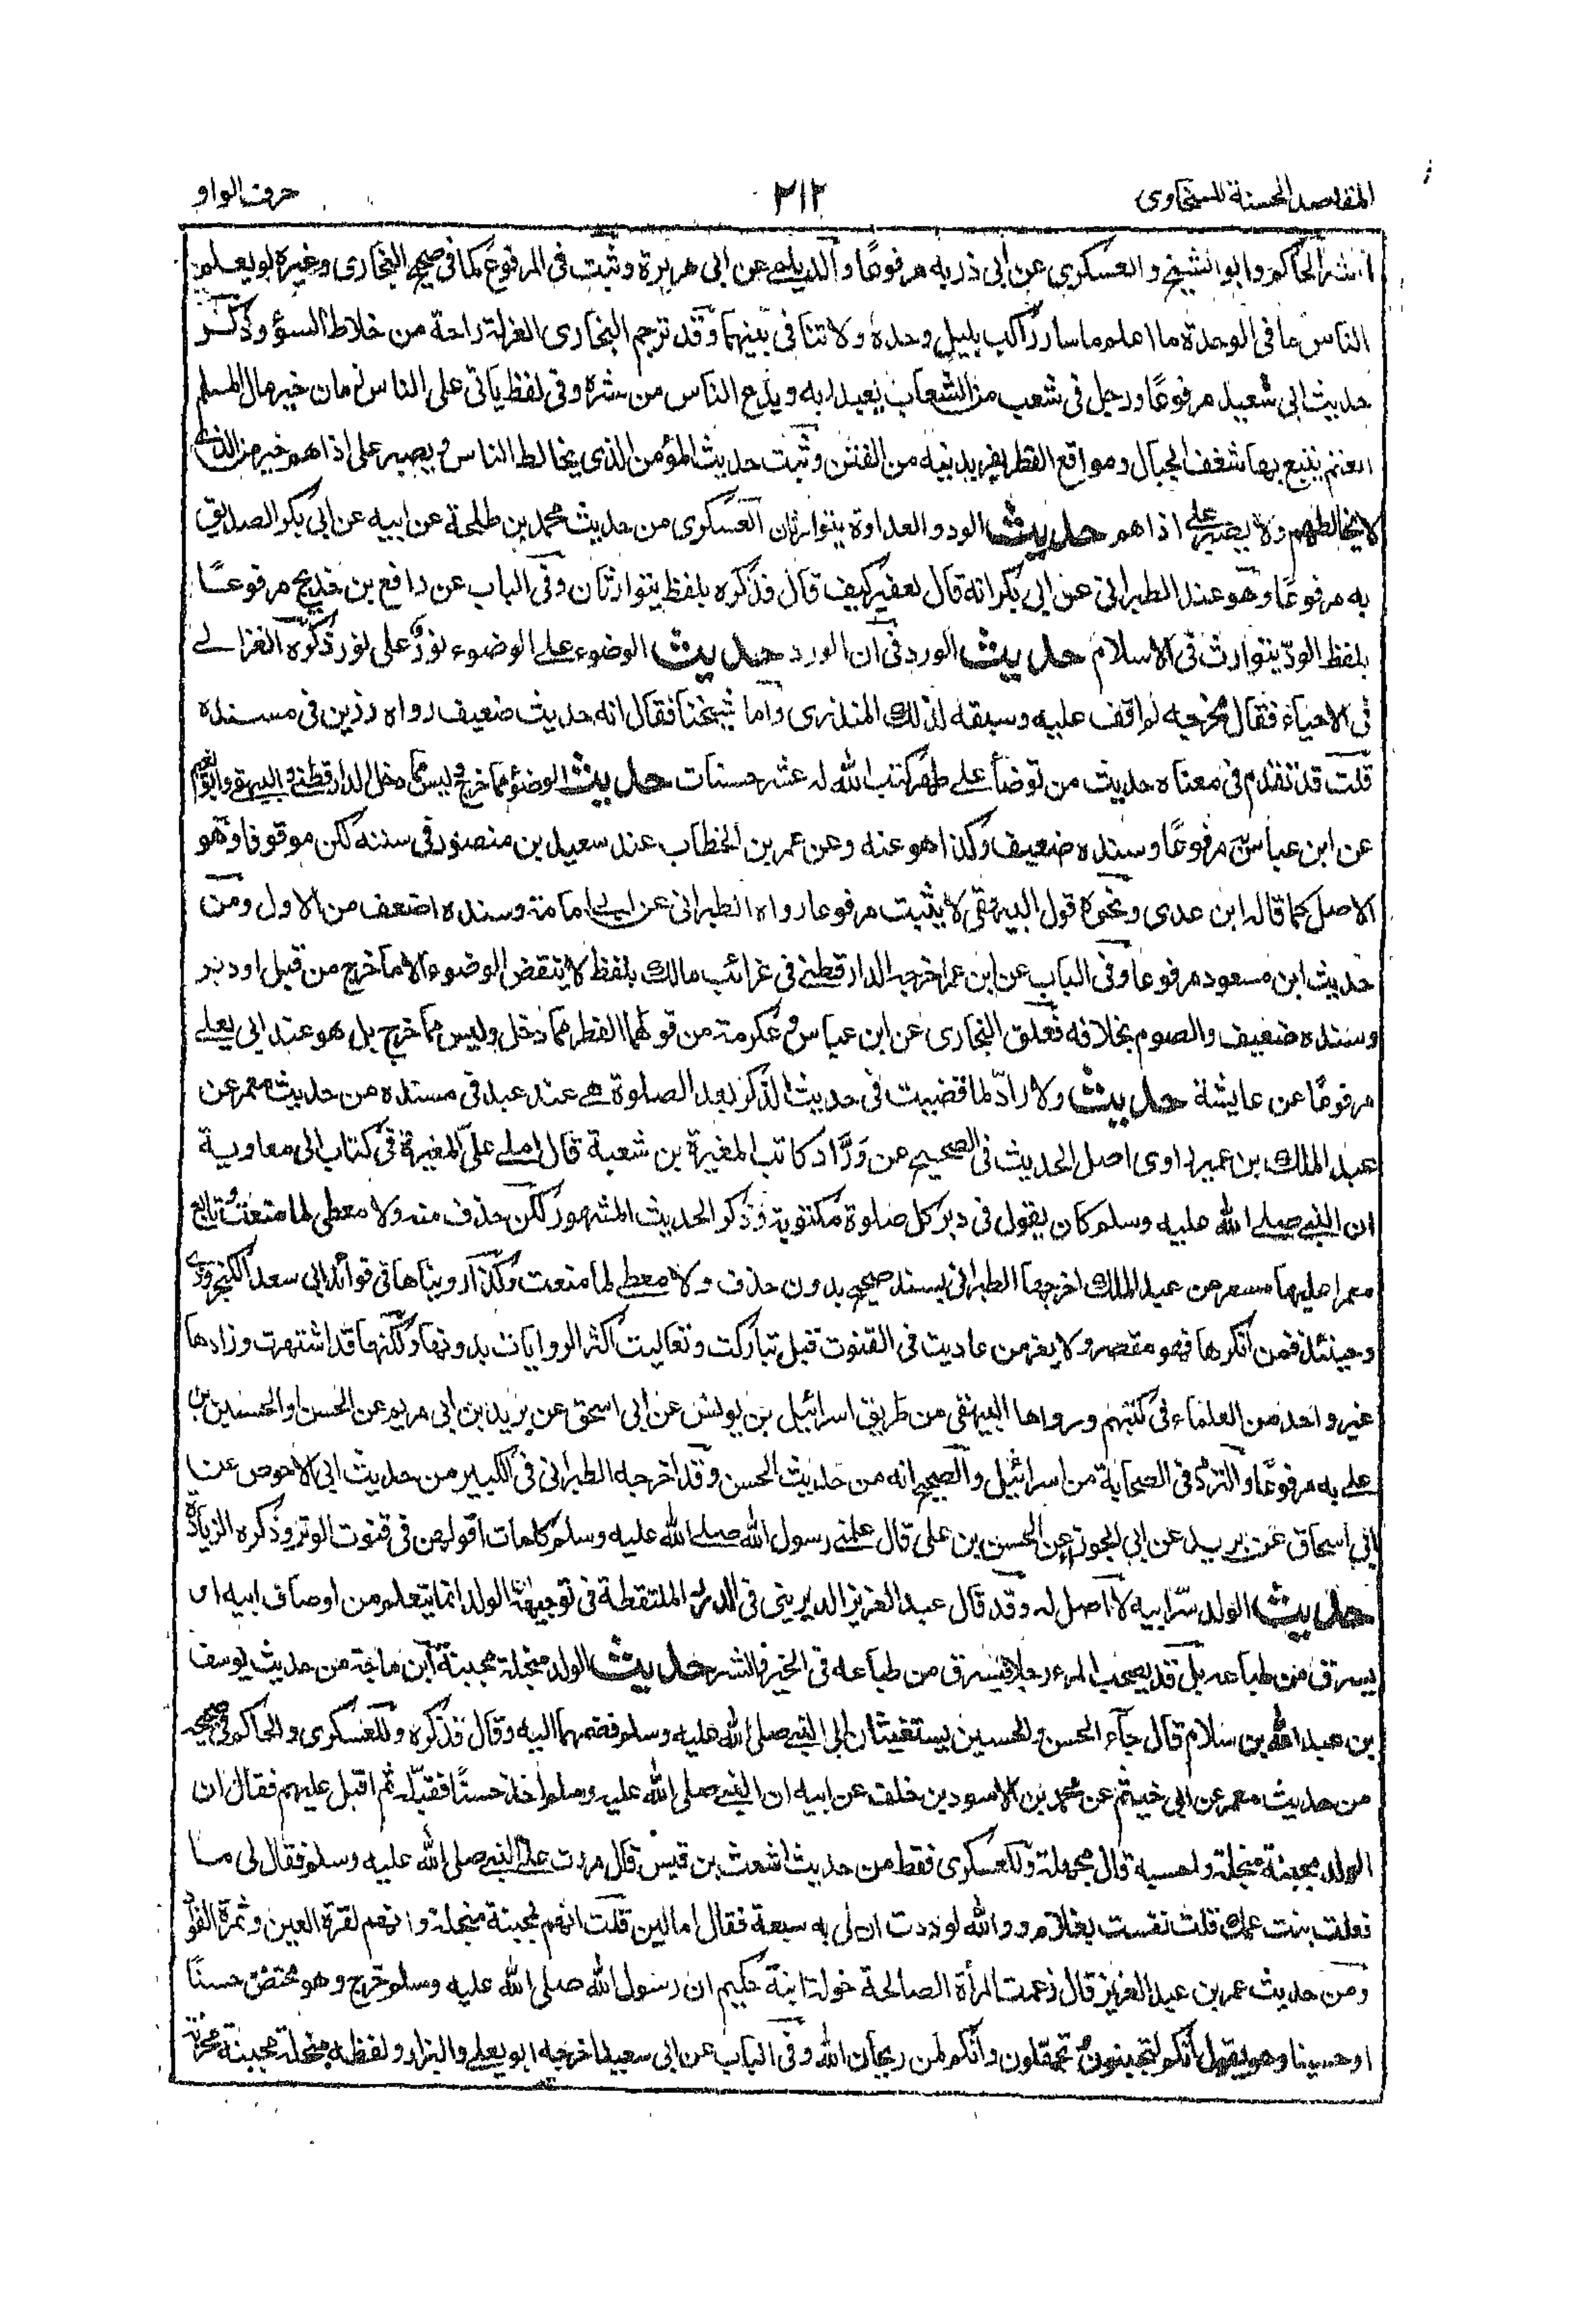 المقاصد الحسنة للسخاوى
٢١٢
حرف الواو
الحاكم وابوالشيخ والعسكري عن أبى ذر به مرفوعًا والديلمے عن ابى هريرة وثبت فى المرفوع كما فى صحيح البخارى وغيره لو يعلم
الناس ما فى الوحدة ما اعلم ما سار راكب بليل وحده ولا تنافى بينهما وقد ترجم البخارى العزلة راحة من خلاط السؤ وذكر
حديث ابى سعيد مرفوعًا ورجل فى شعب من الشعاب يعبد ربه ويدع الناس من شره وفى لفظ ياتى على الناس زمان خير مال المسلم
الغنم يتبع بها شغف الجبال ومواقع القطر يفر بدينه من الفتن وثبت حديث المؤمن الذى يخالط الناس ويصبر على اذاهم خير من الذى
لا يخالطهم ولا يصبر على اذاهم حديث الود والعداوة يتوارثان العسكرى من حديث محمد بن طلحة عن ابيه عن ابى بكر الصديق
به مرفوعًا وهو عند الطبرانى عن ابى بكر انه قال لعفير كيف قال فذكره بلفظ يتوارثان وفى الباب عن رافع بن خديج مرفوعًا
بلفظ الودّ يتوارث فى الاسلام حديث الورد فى ان الورد حديث الوضوء علے الوضوء نورٌ على نور ذكره الغزالے
فى الاحياء فقال مخرجه لم اقف عليه وسبقه لذلك المنذرى واما شيخنا فقال انه حديث ضعيف رواه رزين فى مسنده
قلت قد تقدم فى معناه حديث من توضأ علے طهر كتب الله له عشر حسنات حديث الوضؤ مما خرج وليس مما دخل الدارقطنے والبيهقے وابونعيم
عن ابن عباس مرفوعًا وسنده ضعيف وكذا هو عنه وعن عمر بن الخطاب عند سعيد بن منصور فى سننه لكن موقوفا وهو
الاصل كما قاله ابن عدى ونحوه قول البيهقى لا يثبت مرفوعا رواه الطبرانى عن ابى امامة وسنده اضعف من الاول ومن
حديث ابن مسعود مرفوعا وفى الباب عن ابن عمر اخرجه الدارقطنے فى غرائب مالك بلفظ لا ينقض الوضوء الا ما خرج من قبل او دبر
وسنده ضعيف والصوم بخلافه فعلق البخارى عن ابن عباس وعكرمة من قولهما الفطر مما دخل وليس مما خرج بل هو عند ابى يعلے
مرفوعًا عن عايشة حديث ولا رادّ لما قضيت فى حديث الذكر بعد الصلوة هے عند عبد فى مسنده من حديث معمر عن
عبد الملك بن عمير راوى اصل الحديث فى الصحيح عن ورّاد كاتب المغيرة بن شعبة قال املے علىّ المغيرة فى كتاب الى معاوية
ان النبے صلے الله عليه وسلم كان يقول فى دبر كل صلوة مكتوبة وذكر الحديث المشهور لكن حذف منه ولا معطى لما منعت وتابع
معمرا عليها مسعر عن عبد الملك اخرجها الطبرانى بسند صحيح بدون حذف ولا معطے لما منعت وكذا رويناها فى فوائد ابى سعد الكنجروذى
وحينئذ فمن انكرها فهو مقصر ولا يعز من عاديت فى القنوت قبل تباركت وتعاليت اكثر الروايات بدونها ولكنها قد اشتهرت وزادها
غير واحد من العلماء فى كتبهم ورواها البيهقى من طريق اسرائيل بن يونس عن ابى اسحق عن بريد بن ابى مريم عن الحسن او الحسين بن
علے به مرفوعًا والتردد فى الصحابة من اسرائيل والصحيح انه من حديث الحسن وقد اخرجه الطبرانى فى الكبير من حديث ابى الاحوص عن
ابى اسحاق عن بريد عن ابى الجوزاء عن الحسن بن على قال علمنے رسول الله صلے الله عليه وسلم كلمات اقولهن فى قنوت الوتر وذكره الزيادة
حديث الولد سرّ ابيه لا اصل له وقد قال عبد العزيز الديرينى فى الدرر الملتقطة فى توجيهه الولد انما يتعلم من اوصاف ابيه او
يسرق من طباعه بل قد يصحب المرء رجلا فيسرق من طباعه فى الخير والشر حديث الولد مبخلة مجبنة ابن ماجة من حديث يوسف
بن عبد الله بن سلام قال جآء الحسن والحسين يستبقان الى النبے صلى الله عليه وسلم فضمهما اليه وقال فذكره وللعسكرى والحاكم فى صحيحه
من حديث معمر عن ابى خيثم عن محمد بن الاسود بن خلف عن ابيه ان النبے صلى الله عليه وسلم اخذ حسنًا فقبّله ثم اقبل عليهم فقال ان
الولد مجبنة مبخلة واحسبه قال مجهلة وللعسكرى فقط من حديث اشعث بن قيس قال مررت علے النبے صلى الله عليه وسلم فقال لى ما
فعلت بنت عمك قلت نفست بغلام ووالله لوددت ان لى به سبعة فقال اما لئن قلت انهم لمجبنة مبخلة وانهم لقرة العين وثمرة الفؤاد
ومن حديث عمر بن عبد العزيز قال زعمت المرأة الصالحة خولة ابنة حكيم ان رسول الله صلى الله عليه وسلم خرج وهو محتضن حسنًا
او حسينا وهو يقول انكم لتجبنون وتجهلون وانكم لمن ريحان الله وفى الباب عن ابى سعيد اخرجه ابو يعلے والبزار ولفظه مبخلة مجبنة محزنة